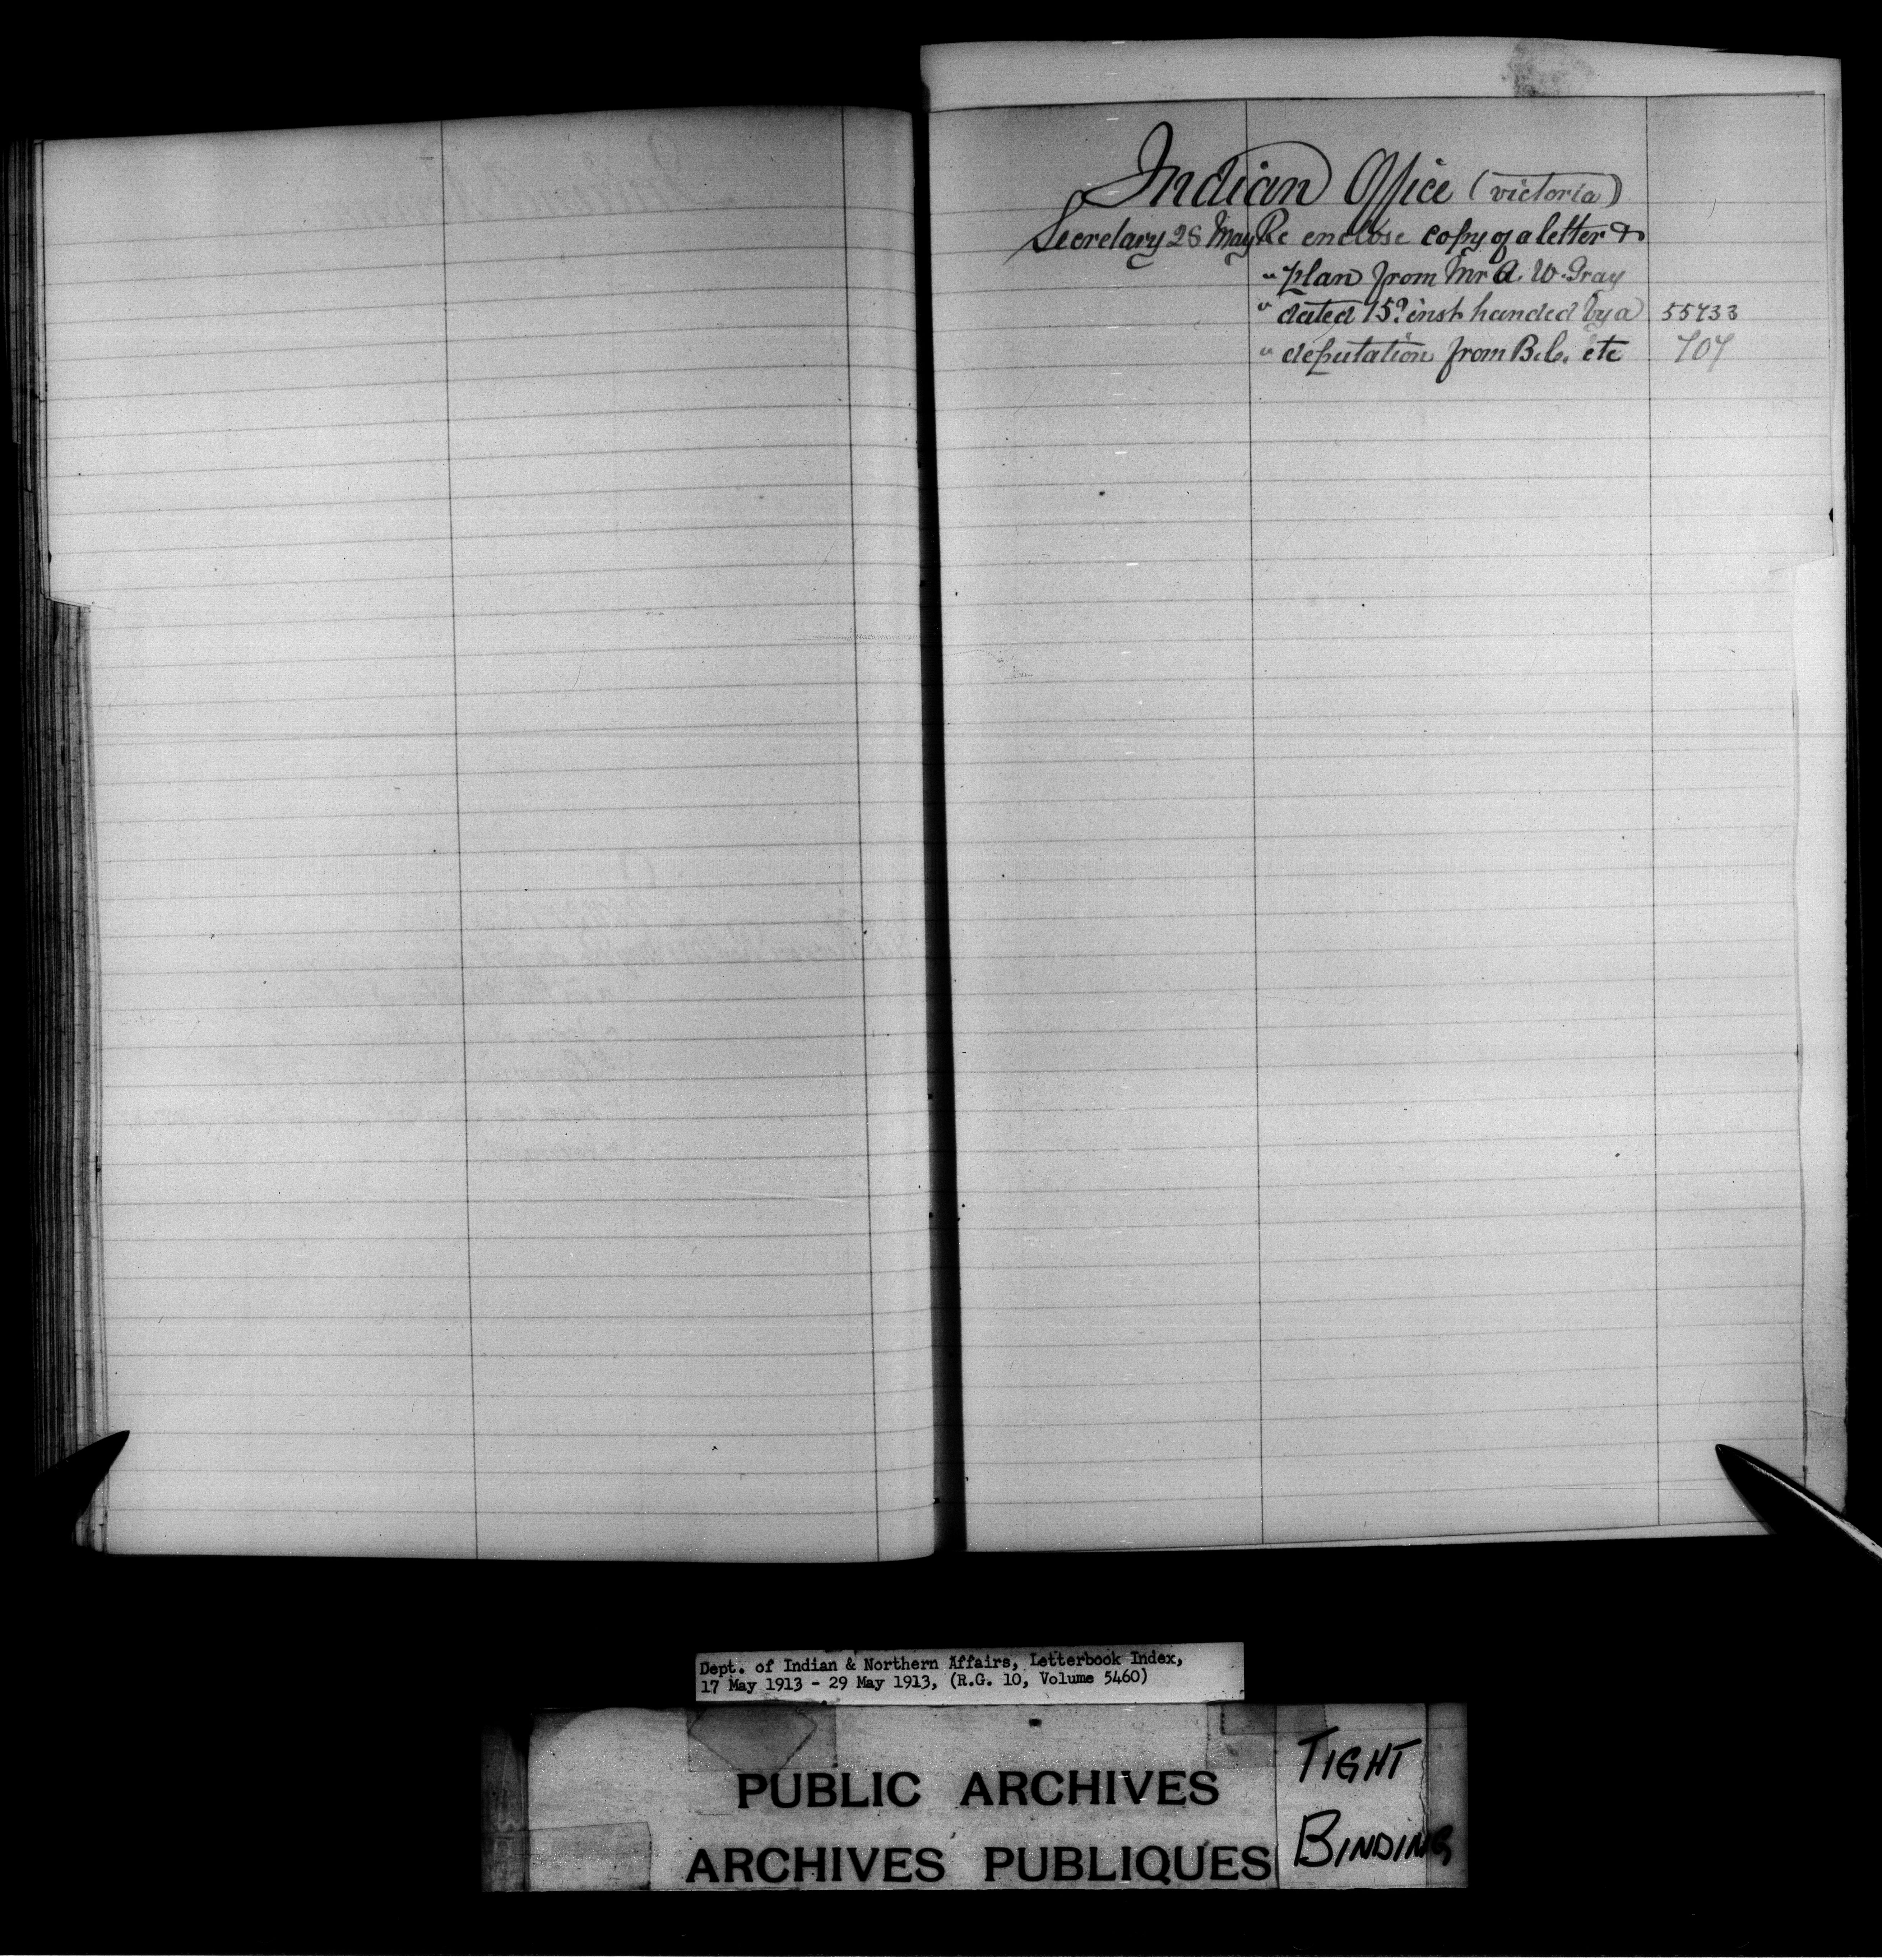 Indian Office (victoria)
Secretary 28 May Re enclose copy of a letter &
" plan from Mr A. W. Gray
" dated 15th inst handed by a 55733
" deputation from B.C. etc 707
Dept. of Indian & Northern Affairs, Letterbook Index,
17 May 1913 - 29 May 1913, (R.G. 10, Volume 5460)
PUBLIC ARCHIVES
ARCHIVES PUBLIQUES
TIGHT
BINDING